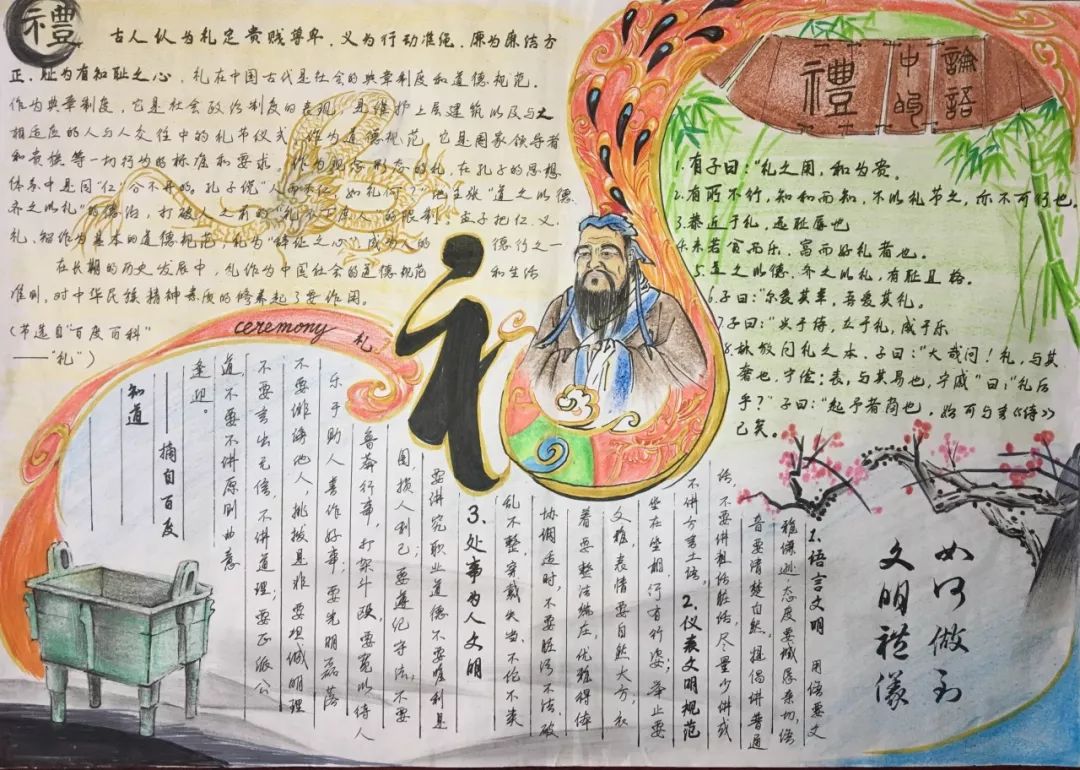 禮
古人认为礼定贵贱尊卑，义为行动准绳，廉为廉洁方
正，耻为有知耻之心，礼在中国古代是社会的典章制度和道德规范。
作为典章制度，它是社会政治制度的表现，是维护上层建筑以及与之
相适应的人与人交往中的礼节仪式，作为道德规范，它是国家领导者
和贵族等一切行为的标准和要求。作为观念形态的礼，在孔子的思想
体系中是同“仁”分不开的。孔子说“人而不仁，如礼何？”他主张“道之以德，
齐之以礼”的德治，打破人之前的“礼不下庶人”的限制，孟子把仁、义、
礼、智作为基本的道德规范，礼为“辞让之心”，成为人的 德行之一
在长期的历史发展中，礼作为中国社会的道德规范 和生活
准则，对中华民族精神素质的修养起了要作用。
（节选自“百度百科”
——“礼”）
ceremony 礼
礼
論語
中的
禮
1.有子曰：“礼之用，和为贵。
2.有所不行，知和而知，不以礼节之，亦不可行也。
3.恭近于礼，远耻辱也
4.未若贫而乐，富而好礼者也。
5.道之以德，齐之以礼，有耻且格。
6.子曰：“尔爱其羊，吾爱其礼。
7.子曰：“兴于诗，立于礼，成于乐
8.林放问礼之本，子曰：“大哉问！礼，与其
奢也，宁俭；丧，与其易也，宁戚”曰：“礼后
乎？”子曰：“起予者商也，始可与言《诗》
已矣。
如何做到
文明禮儀
1.语言文明 用语要文
雅谦逊态度要诚恳亲切，语
音要清楚自然，提倡讲普通
话，不要讲粗话脏话，尽量少讲或
不讲方言土语。 2.仪表文明规范
坐在坐相，行有行姿；举止要
文雅，表情要自然大方，衣
着要整洁端庄，优雅得体
协调适时，不要脏污不洁，破
乱不整，穿戴失当，不伦不类
3.处事为人文明
要讲究职业道德不要唯利是
图，损人利己；要遵纪守法，不要
鲁莽行事，打架斗殴，要宽以待人
乐于助人，善作好事；要光明磊落
不要诽谤他人，挑拨是非，要坦诚明理
不要言出无信，不讲道理；要正派公
道，不要不讲原则曲意
逢迎。
知道
——摘自百度